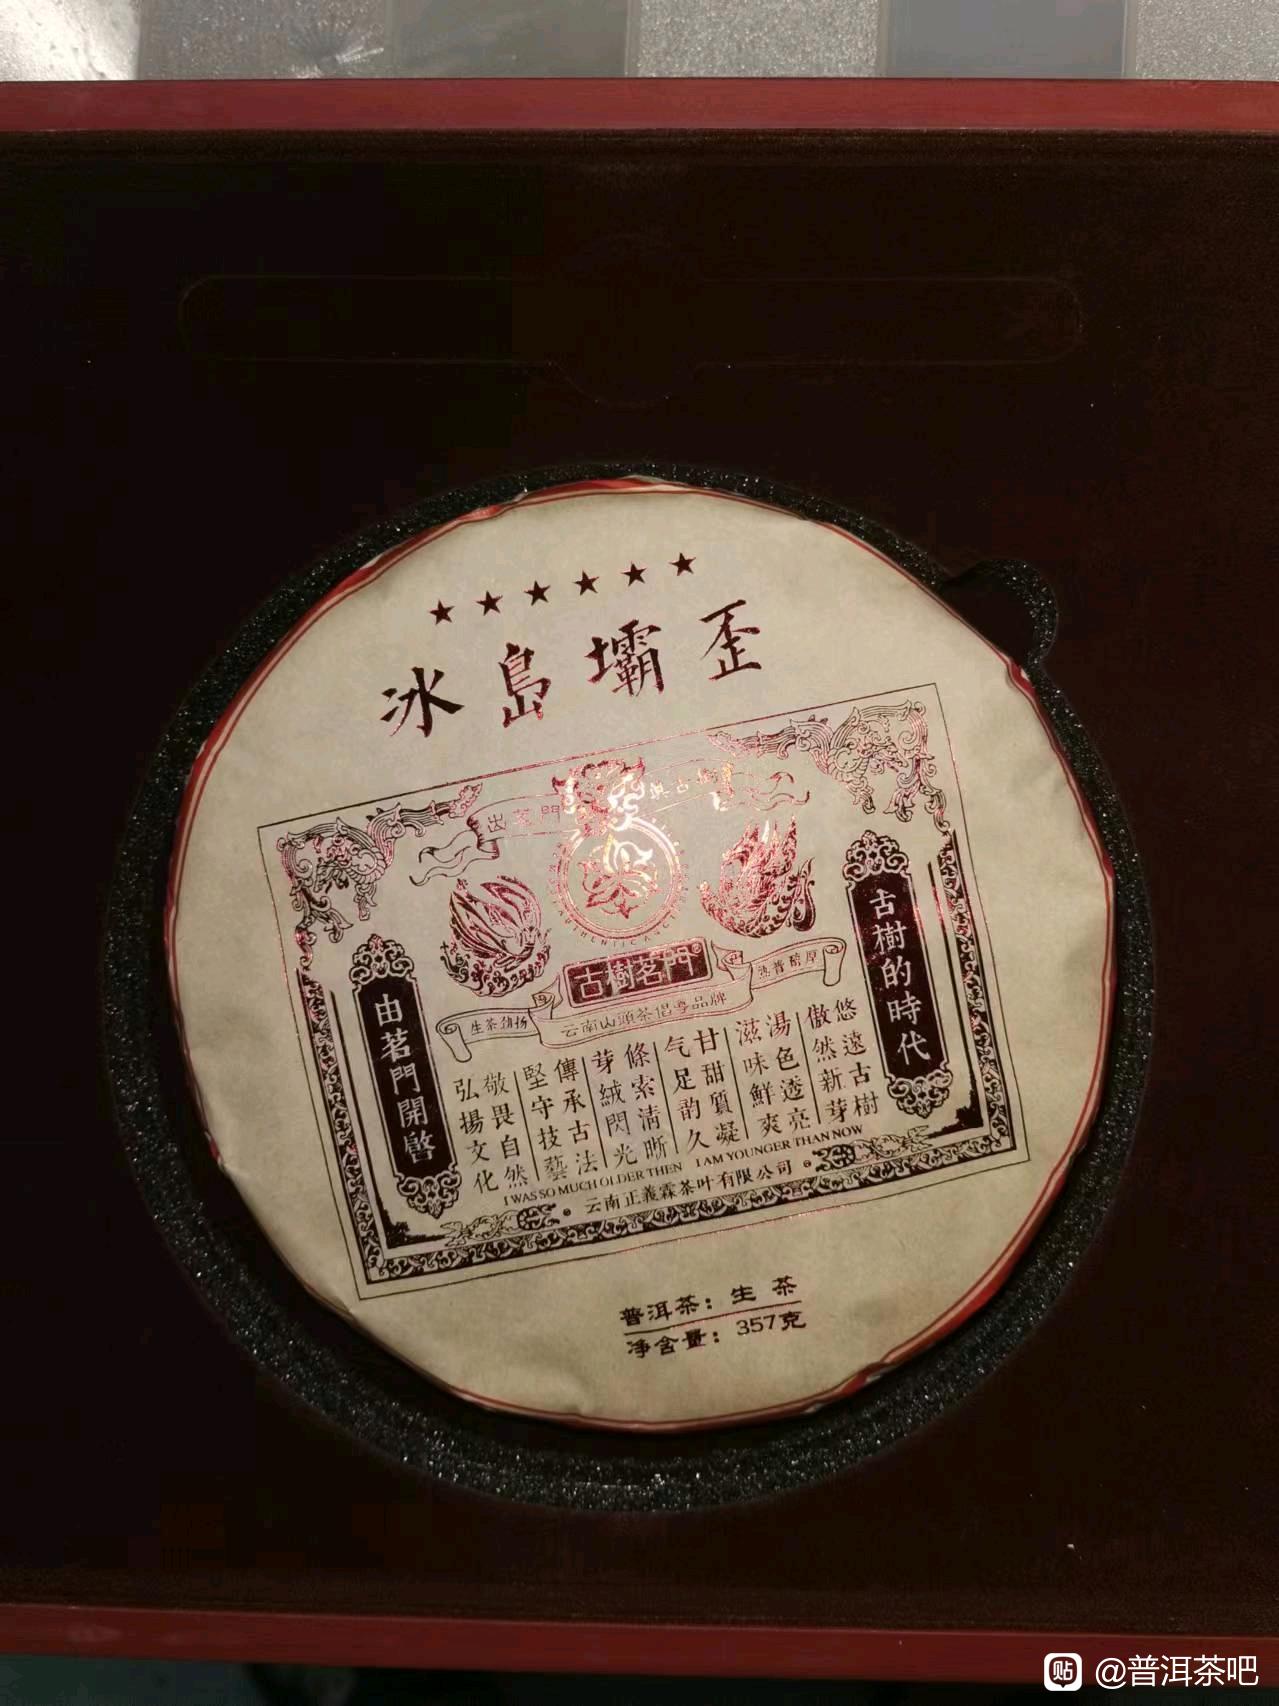 ★★★★★★
冰島壩歪
出茗門 真古樹
AUTHENTICANCI
古樹茗門®
生茶韵扬
熟普醇厚
云南山頭茶倡導品牌
古樹的時代
由茗門開啓
悠遠古樹
傲然新芽
湯色透亮
滋味鮮爽
甘甜質凝
气足韵久
條索清晰
芽絨閃光
傳承古法
堅守技藝
敬畏自然
弘揚文化
I WAS SO MUCH OLDER THEN I AM YOUNGER THAN NOW
云南正義霖茶叶有限公司
普洱茶：生 茶
净含量：357克
贴 @普洱茶吧